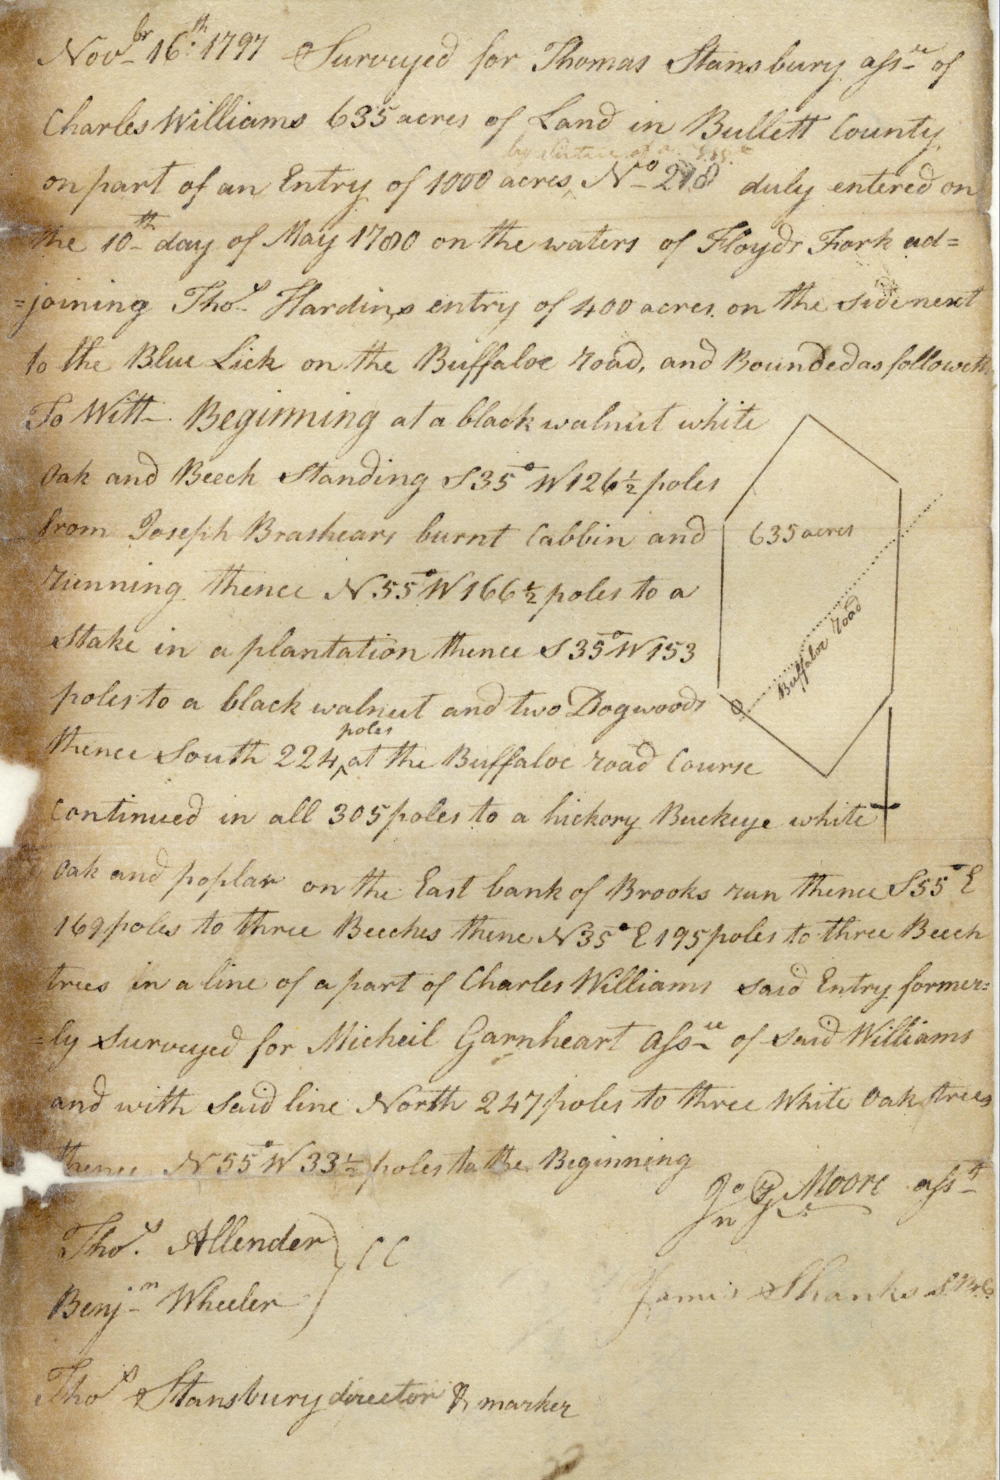 Novbr 16th 1797 Surveyed for Thomas Stansbury assee of
Charles Williams 635 acres of Land in Bullett County
by Virtue of a
on part of an Entry of 1000 acres, No 218 duly entered on
the 10th day of May 1780 on the waters of Floyds Fork ad=
=joining Thos Hardins entry of 400 acres on the side next
to the Blue Lick on the Buffaloe road, and Bounded as followeth
To Witt Beginning at a black walnut white
Oak and Beech Standing S35° W126½ poles
from Joseph Brashears burnt Cabbin and
running thence N55° W166½ poles to a
Stake in a plantation thence S35° W153
poles to a black walnut and two Dogwoods
thence South 224 poles at the Buffaloe road Course
Continued in all 305 poles to a hickory Buckeye white
Oak and poplar on the East bank of Brooks run thence S55° E
169 poles to three Beeches thence N35° E 195 poles to three Beech
trees in a line of a part of Charles Williams said Entry former=
=ly surveyed for Micheil Garnheart Assee of said Williams
and with said line North 247 poles to three White Oak trees
thence N55° W 33½ poles to the Beginning
635 acres
Buffaloe road
Moore asst
Thos Allender
Benjn Wheeler
CC
James Shanks
Thos Stansbury director & marker